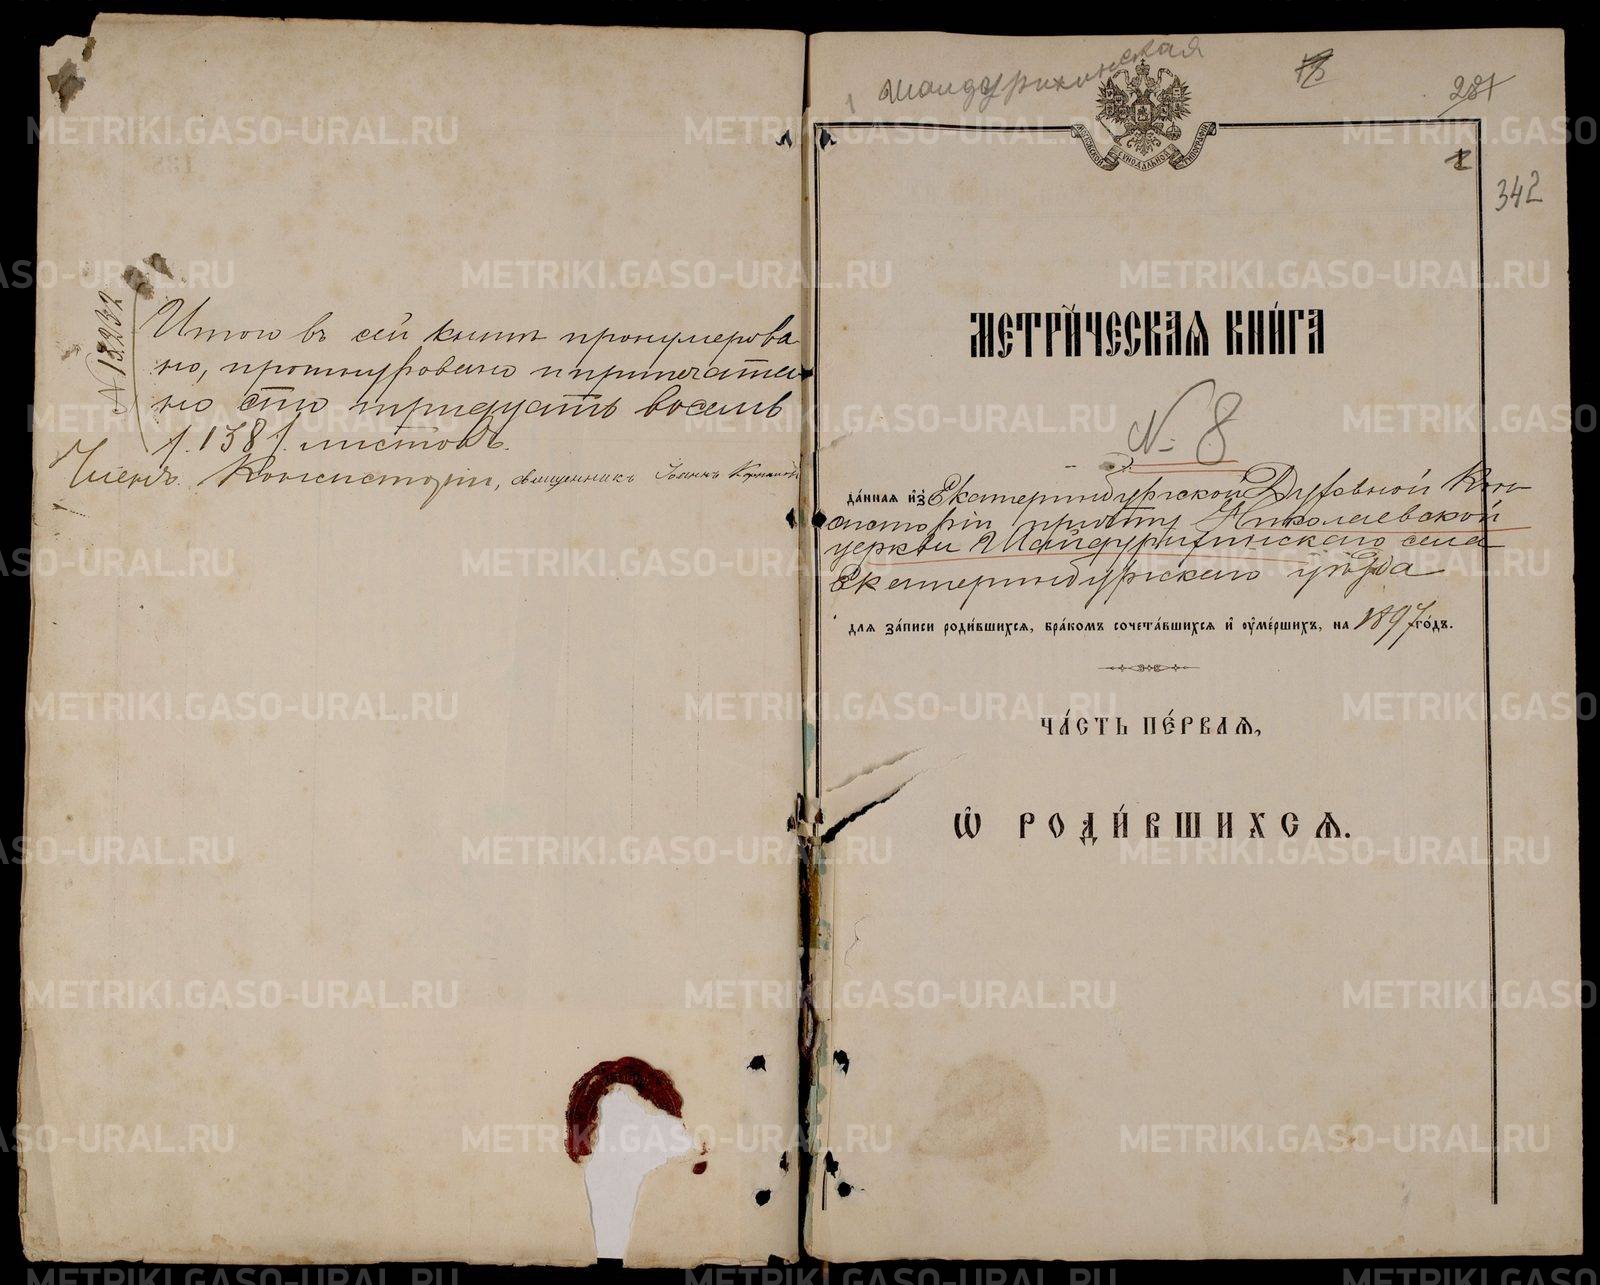 № 13232
Итого въ сей книгѣ пронумерова
но, прошнуровано и припечата
но сто тридцать восемь
/.138/. листовъ.
Членъ Консисторіи, священникъ Іоаннъ
Шайдурихинская
281
342
МЕТРИ́ЧЕСКАѦ КНИ́ГА
№ 8
да́нная и҆зъ Екатеринбургской Духовной Кон-
систоріи причту Николаевской
церкви Шайдурихинскаго села
Екатеринбургскаго уѣзда
для за́писи роди́вшихсѧ, бра́комъ сочета́вшихсѧ и҆ ᲂу҆ме́ршихъ, на 1897 го́дъ.
ЧА́СТЬ ПЕ́РВАѦ,
Ѽ РОДИ́ВШИХСѦ.
METRIKI.GASO-URAL.RU